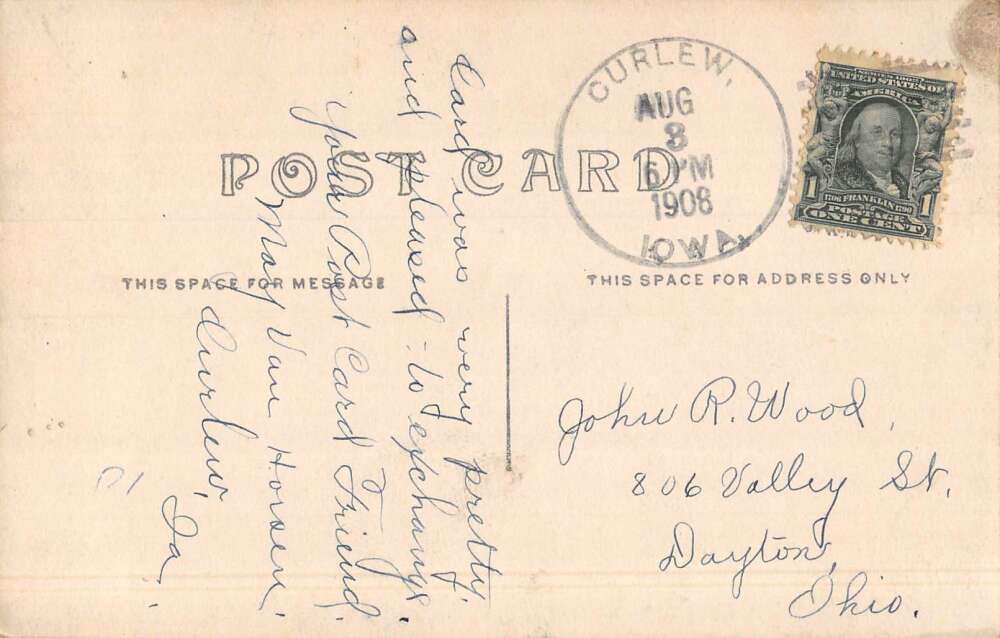 POST CARD
THIS SPACE FOR MESSAGE
THIS SPACE FOR ADDRESS ONLY
CURLEW,
AUG
3
6 PM
1908
IOWA.
SERIES 1902
UNITED STATES OF
AMERICA
1706 FRANKLIN 1790
1 POSTAGE 1
ONE CENT
Card was very pretty.
and pleased to exchange.
Your Post Card Friend
May Van Horsen.
Curlew,
Ia.
John R. Wood,
806 Valley St.
Dayton,
Ohio.
10